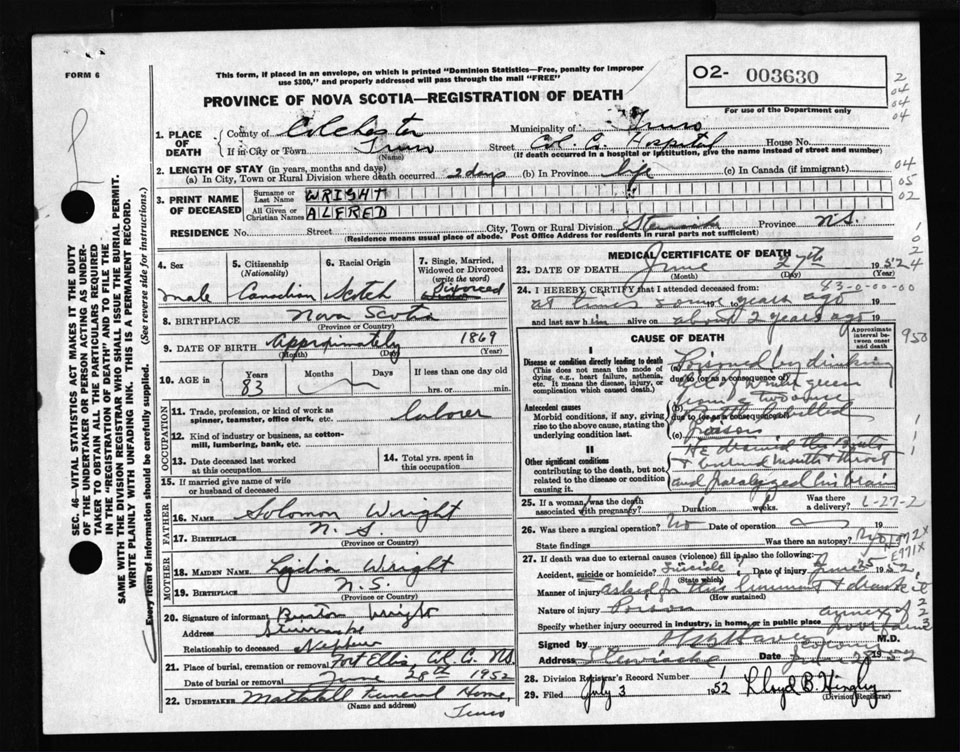 FORM 6
This form, if placed in an envelope, on which is printed "Dominion Statistics—Free, penalty for improper
use $300," and properly addressed will pass through the mail "FREE"
PROVINCE OF NOVA SCOTIA—REGISTRATION OF DEATH
02- 003630
For use of the Department only
2
04
04
04
1. PLACE OF DEATH
County of Colchester Municipality of Truro
If in City or Town Truro Street Col. Co. Hospital House No.
(Name) (If death occurred in a hospital or institution, give the name instead of street and number)
2. LENGTH OF STAY (in years, months and days)
(a) In City, Town or Rural Division where death occurred 2 days (b) In Province life (c) In Canada (if immigrant)
04
05
02
3. PRINT NAME OF DECEASED
Surname or Last Name WRIGHT
All Given or Christian Names ALFRED
RESIDENCE No. Street City, Town or Rural Division Stewiacke Province N.S.
(Residence means usual place of abode. Post Office Address for residents in rural parts not sufficient)
SEC. 46 VITAL STATISTICS ACT MAKES IT THE DUTY
OF THE UNDERTAKER OR PERSON ACTING AS UNDER-
TAKER TO OBTAIN ALL THE PARTICULARS REQUIRED
IN THE "REGISTRATION OF DEATH" AND TO FILE THE
SAME WITH THE DIVISION REGISTRAR WHO SHALL ISSUE THE BURIAL PERMIT.
WRITE PLAINLY WITH UNFADING INK. THIS IS A PERMANENT RECORD.
Every item of information should be carefully supplied. (See reverse side for instructions.)
4. Sex
male
5. Citizenship
(Nationality)
Canadian
6. Racial Origin
Scotch
7. Single, Married,
Widowed or Divorced
(write the word)
Divorced
8. BIRTHPLACE Nova Scotia
(Province or Country)
9. DATE OF BIRTH Approximately 1869
(Month) (Day) (Year)
10. AGE in Years Months Days If less than one day
83 hrs. or min.
OCCUPATION
11. Trade, profession, or kind of work as
spinner, teamster, office clerk, etc. laborer
12. Kind of industry or business, as cotton-
mill, lumbering, bank, etc.
13. Date deceased last worked
at this occupation
14. Total yrs. spent in
this occupation
15. If married give name of wife
or husband of deceased
FATHER
16. NAME Solomon Wright
17. BIRTHPLACE N. S.
(Province or Country)
MOTHER
18. MAIDEN NAME Lydia Wright
19. BIRTHPLACE N.S.
(Province or Country)
20. Signature of informant Burton Wright
Address Stewiacke
Relationship to deceased Nephew
21. Place of burial, cremation or removal Fort Ellis, Col. Co. N.S.
Date of burial or removal June 28th 1952
22. UNDERTAKER Mattatall Funeral Home,
(Name and address) Truro
MEDICAL CERTIFICATE OF DEATH
23. DATE OF DEATH June 27th 1952
(Month) (Day) (Year)
83-0-00-00
24. I HEREBY CERTIFY that I attended deceased from:
at times some years ago 19
and last saw him alive on about 2 years ago 19
CAUSE OF DEATH
Approximate interval between onset and death
950
I
Disease or condition directly leading to death
(This does not mean the mode of dying, e.g., heart failure, asthenia, etc. It means the disease, injury, or complication which caused death.)
due to (or as a consequence of)
Antecedent causes
Morbid conditions, if any, giving rise to the above cause, stating the underlying condition last.
(b)
due to (or as a consequence of)
(c)
II
Other significant conditions
contributing to the death, but not related to the disease or condition causing it.
Poisoned by drinking
from a two ounce
Bottle labelled
poison
He drained the Bottle
& burned mouth & throat
and paralyzed his brain
25. If a woman, was the death
associated with pregnancy? Duration weeks. Was there a delivery?
26. Was there a surgical operation? No Date of operation 19
State findings Was there an autopsy?
27. If death was due to external causes (violence) fill in also the following:
Accident, suicide or homicide? Suicide Date of injury June 25 1952
(State which)
Manner of injury asked for this liniment & drank it
(How sustained)
Nature of injury Poison
Specify whether injury occurred in industry, in home, or in public place
Signed by M.D.
Address Stewiacke Date
28. Division Registrar's Record Number
29. Filed July 3 1952 Lloyd B. Hingley
(Division Registrar)